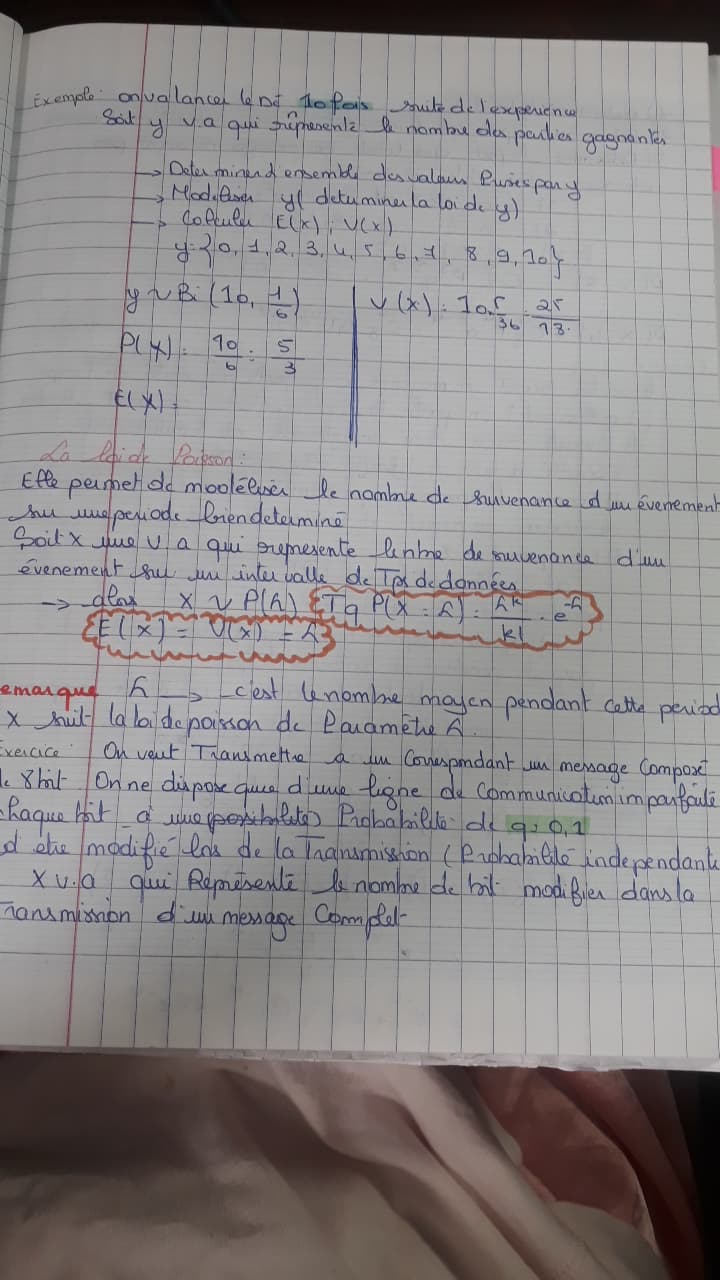 Exemple: on va lancer le Dé 10 fois suite de l'experience
Soit y v.a qui représente le nombre des parties gagnantes
→ Determiner d'ensemble des valeurs Prises par y
→ Modeliser y ( determiner la loi de y)
→ Calculer E(x), V(x)
y = {0, 1, 2, 3, 4, 5, 6, 7, 8, 9, 10}
y ~ Bi (10, 1/6)
P(X) = 10/6 = 5/3
E(X) =
V(x) = 10. 5/36 = 25/18.
La loi de Poisson:
Elle permet de modéliser le nombre de suvenance d'un évenement
su une periode bien determiné
Soit x une v a qui represente le nbre de suvenance d'un
évenement su un intervalle de Tps de données
→ alors X ~ P(λ) Tq P(X = k) = λk/k! . e-λ
E(x) = V(x) = λ
emarque λ → c'est le nombre moyen pendant cette period
X suit la loi de poisson de Paramètre λ.
Exercice: On veut Transmettre a un Correspondant un message Composé
de 8 bit On ne dispose que d'une ligne de communication imparfaite
chaque bit a une (possibilité) Probabilité de q= 0,1
d'etre modifié lors de la Transmission (Probabilité independante
X v.a qui Représente le nombre de bit modifier dans la
Transmission d'un message Complet